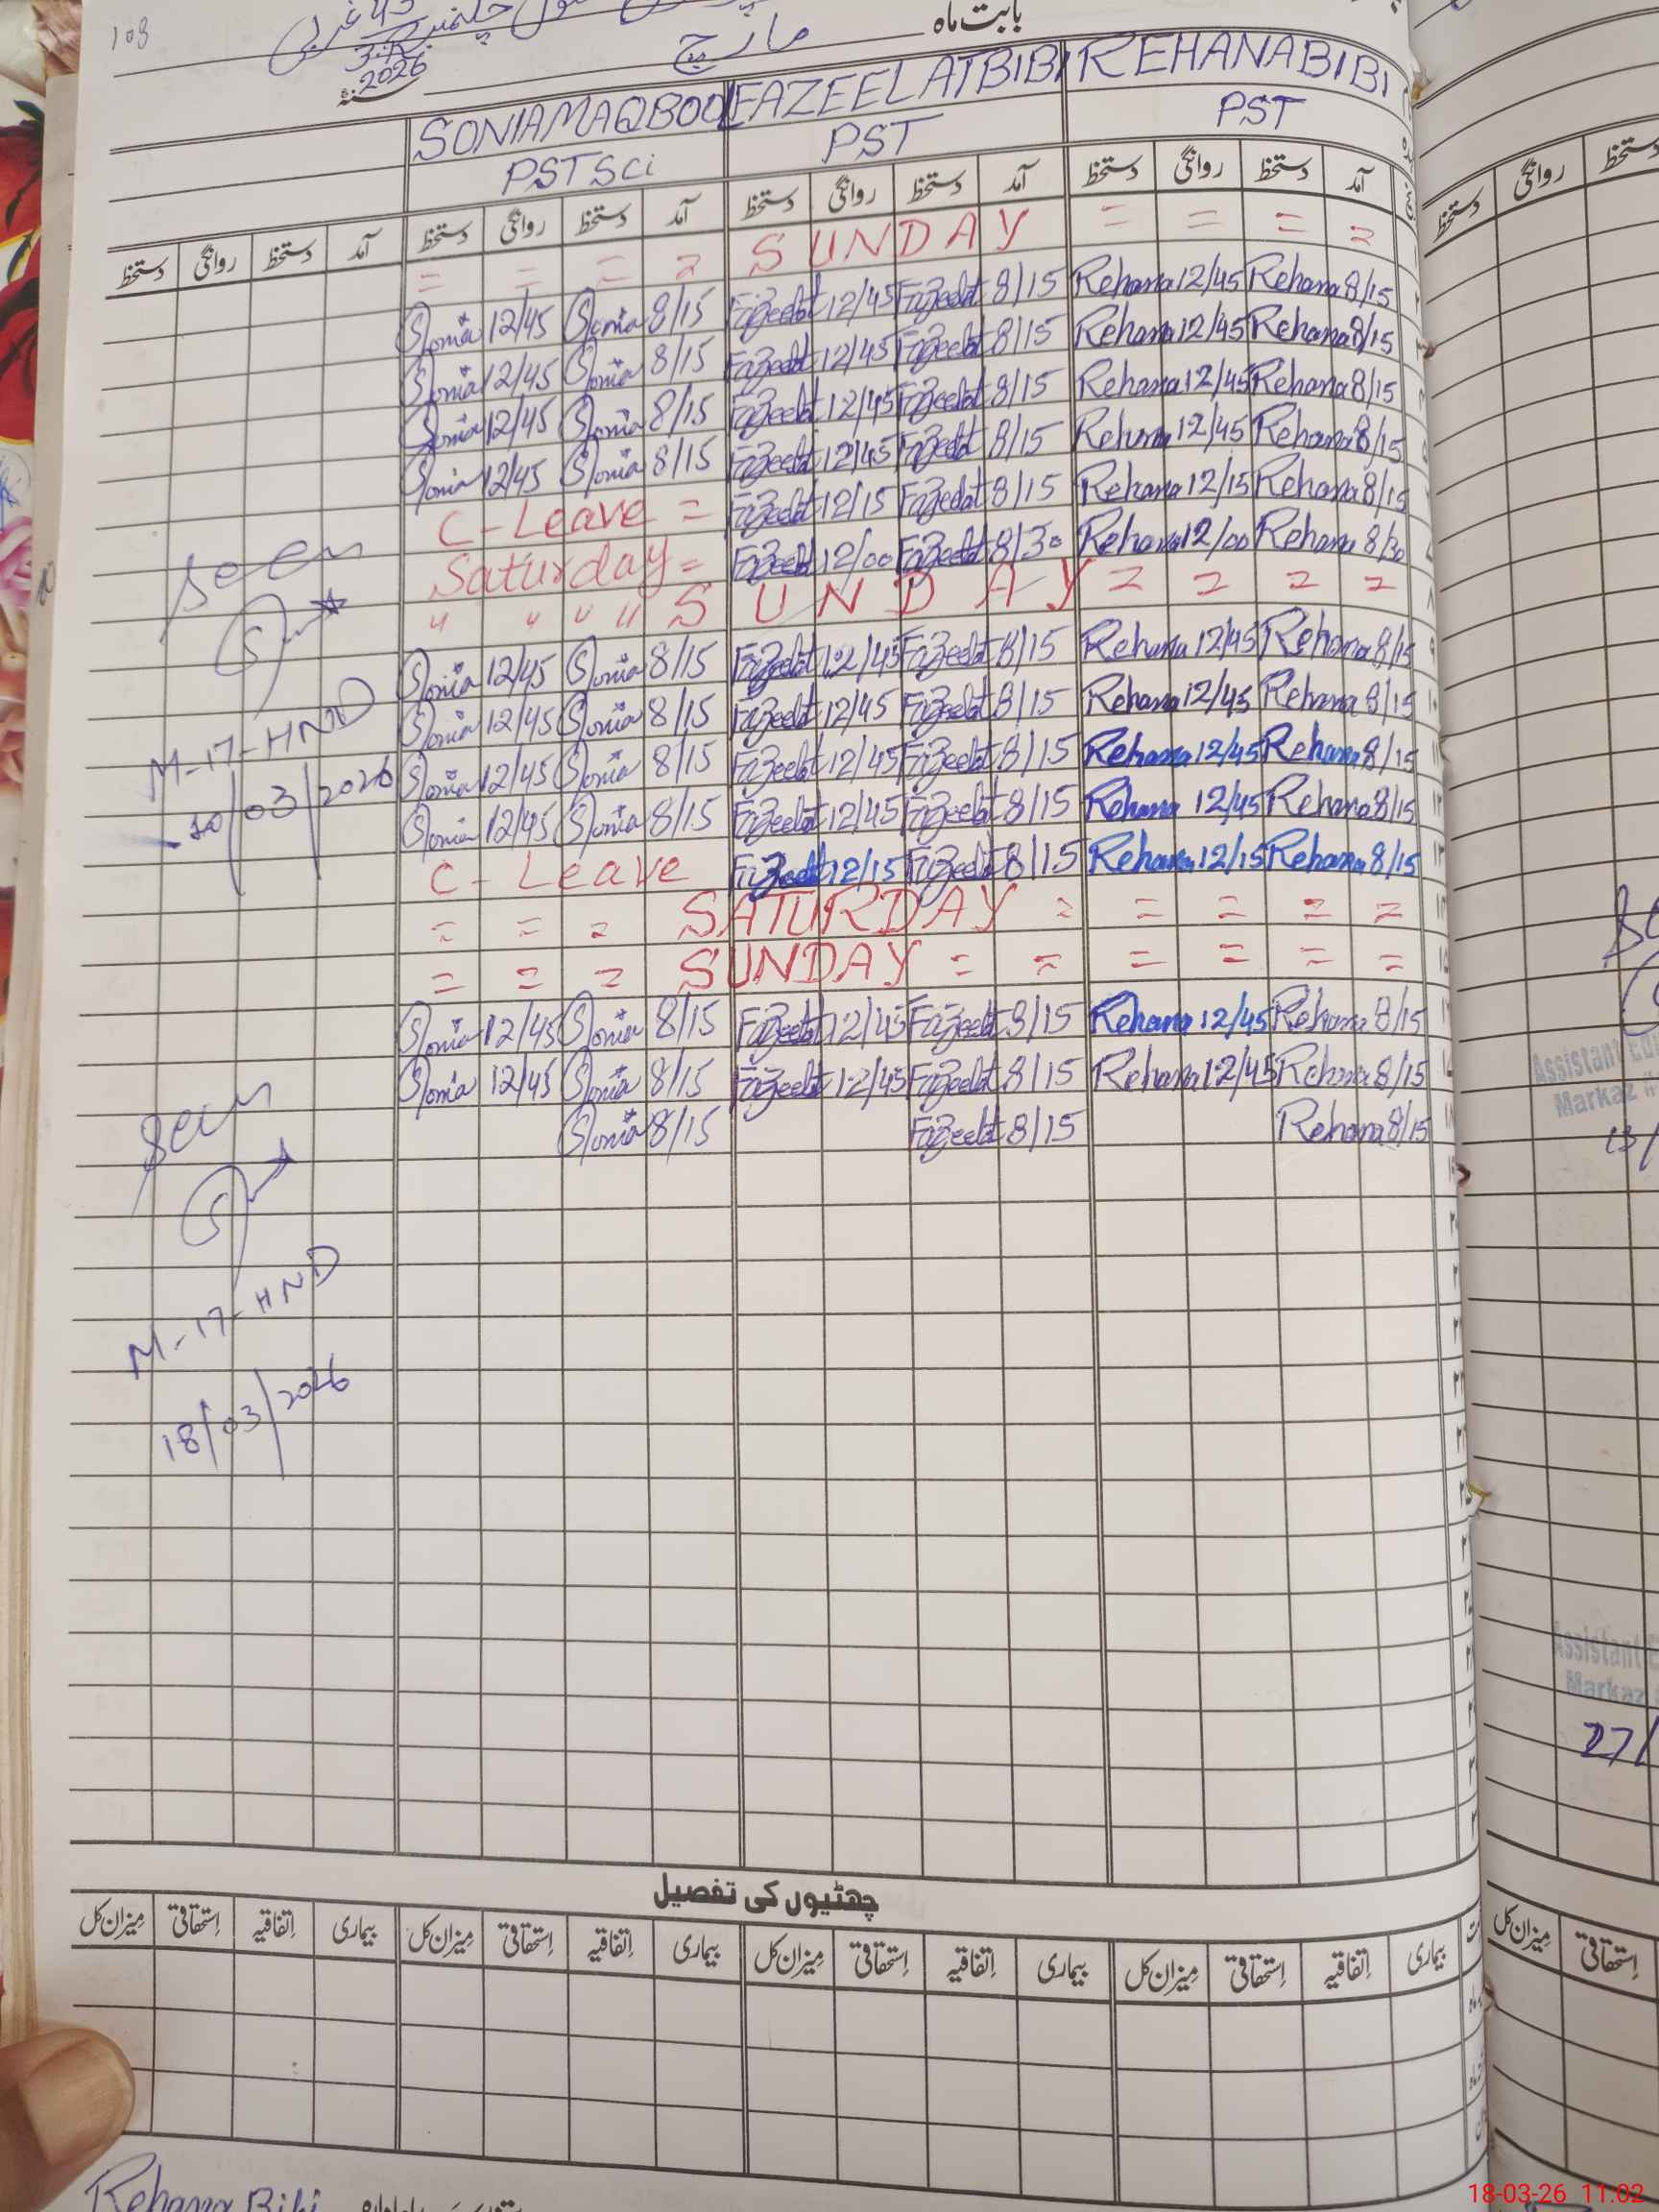 108
غربی
3-R
سنہ 2026
بابت ماہ مارچ
SONIA MAQBOOL FAZEELAT BIBI REHANA BIBI
PST Sci PST PST
دستخط روانگی دستخط آمد دستخط روانگی دستخط آمد دستخط روانگی دستخط آمد دستخط روانگی دستخط آمد
= = = = S U N D A Y = = = =
Sonia 12/45 Sonia 8/15 Fazeelat 12/45 Fazeelat 8/15 Rehana 12/45 Rehana 8/15
Sonia 12/45 Sonia 8/15 Fazeelat 12/45 Fazeelat 8/15 Rehana 12/45 Rehana 8/15
Sonia 12/45 Sonia 8/15 Fazeelat 12/45 Fazeelat 8/15 Rehana 12/45 Rehana 8/15
Sonia 12/45 Sonia 8/15 Fazeelat 12/45 Fazeelat 8/15 Rehana 12/45 Rehana 8/15
C-Leave = Fazeelat 12/15 Fazeelat 8/15 Rehana 12/15 Rehana 8/15
Saturday = Fazeelat 12/00 Fazeelat 8/30 Rehana 12/00 Rehana 8/30
" " " " S U N D A Y = = = =
Sonia 12/45 Sonia 8/15 Fazeelat 12/45 Fazeelat 8/15 Rehana 12/45 Rehana 8/15
Sonia 12/45 Sonia 8/15 Fazeelat 12/45 Fazeelat 8/15 Rehana 12/45 Rehana 8/15
Sonia 12/45 Sonia 8/15 Fazeelat 12/45 Fazeelat 8/15 Rehana 12/45 Rehana 8/15
Sonia 12/45 Sonia 8/15 Fazeelat 12/45 Fazeelat 8/15 Rehana 12/45 Rehana 8/15
C-Leave Fazeelat 12/15 Fazeelat 8/15 Rehana 12/15 Rehana 8/15
= = = SATURDAY = = = = =
= = = SUNDAY = = = = = =
Sonia 12/45 Sonia 8/15 Fazeelat 12/45 Fazeelat 8/15 Rehana 12/45 Rehana 8/15
Sonia 12/45 Sonia 8/15 Fazeelat 12/45 Fazeelat 8/15 Rehana 12/45 Rehana 8/15
Sonia 8/15 Fazeelat 8/15 Rehana 8/15
Seen
M-17-HND
10/03/2026
Seen
M-17-HND
18/03/2026
چھٹیوں کی تفصیل
میزان کل اِستحقاقی اِتفاقیہ بیماری میزان کل اِستحقاقی اِتفاقیہ بیماری میزان کل اِستحقاقی اِتفاقیہ بیماری میزان کل اِستحقاقی اِتفاقیہ بیماری
Rehana Bibi
دستخط روانگی دستخط
Assistant
Markaz
13/
Assistant
Markaz
27/
میزان کل اِستحقاقی
18-03-26 11:02